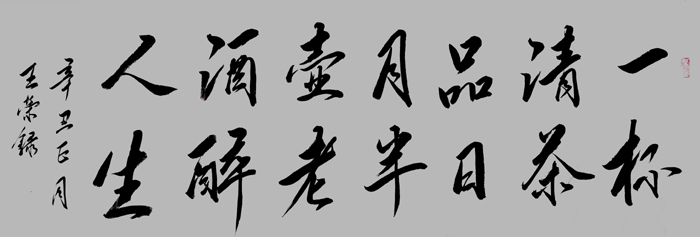 一杯
清茶
品日
月半
壶老
酒醉
人生
辛丑正月
王荣